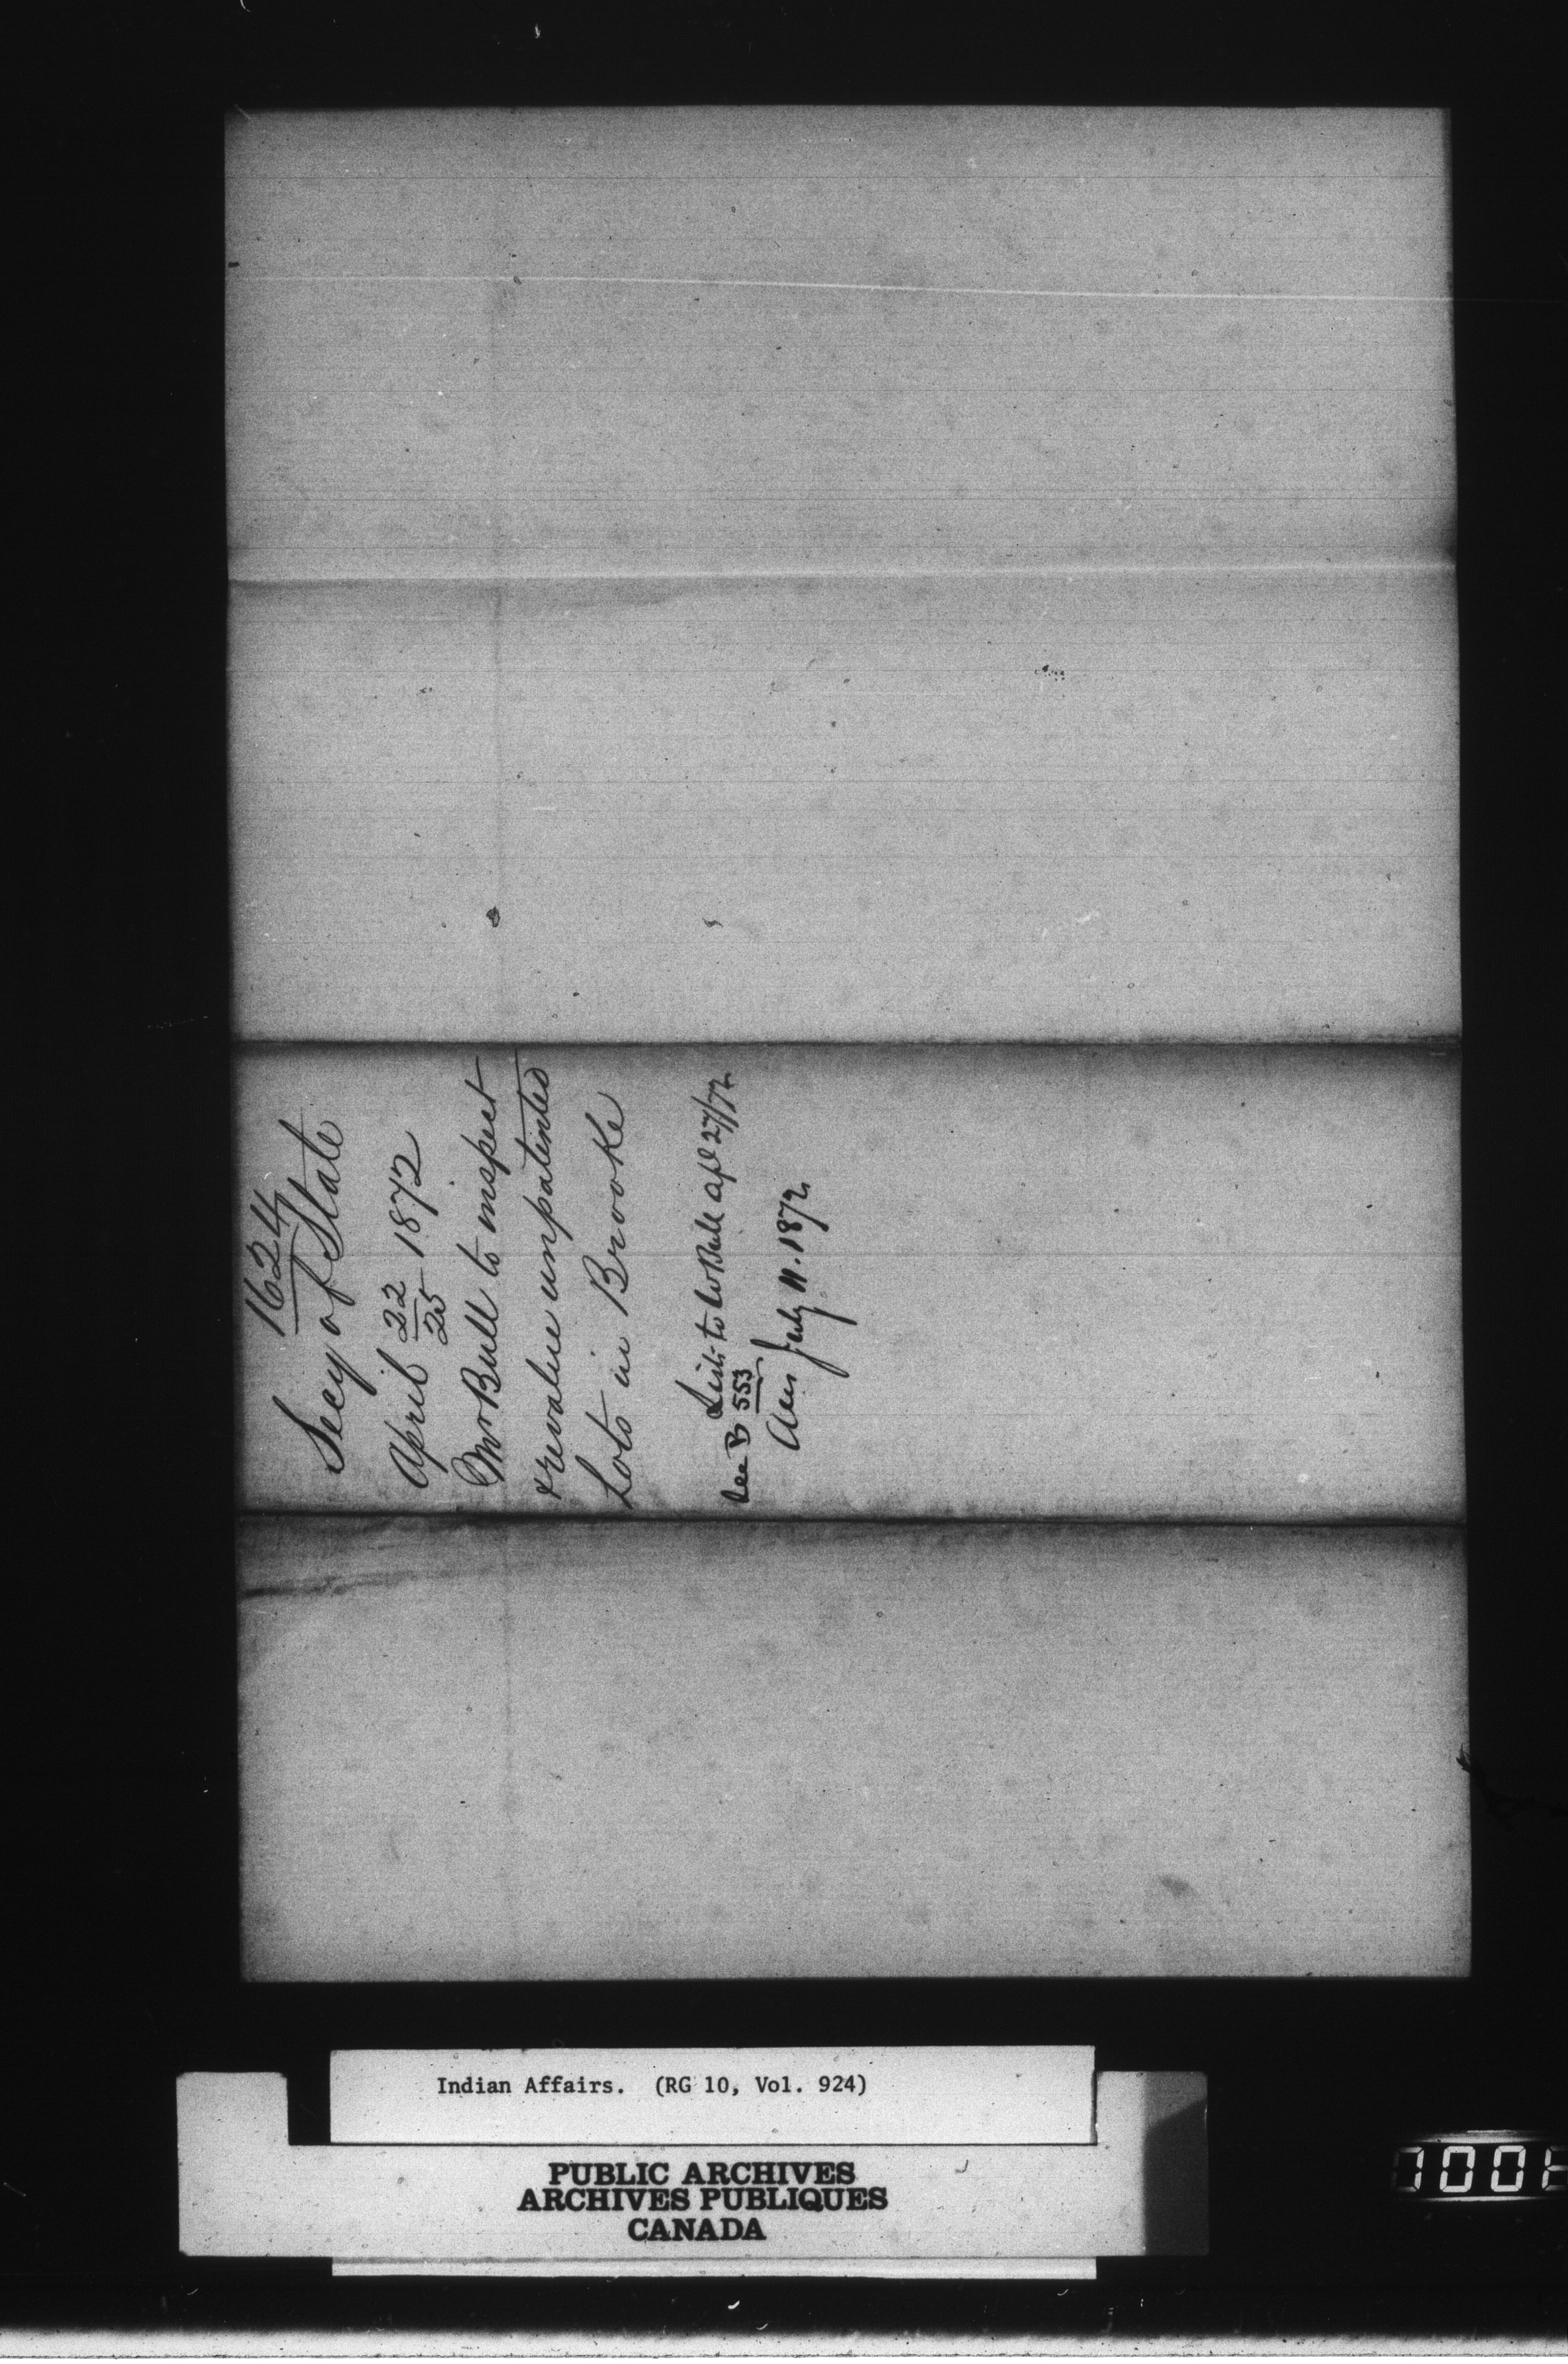 1624
Secy of State
April 22/25 1872
Mr Bull to inspect
& revalue unpatented
Lots in Brooke
to W Bull apl 27/72
See B 553
Ans July 11. 1872
Indian Affairs. (RG 10, Vol. 924)
PUBLIC ARCHIVES
ARCHIVES PUBLIQUES
CANADA